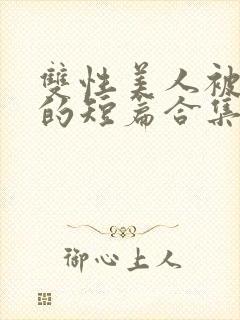 雙性美人被
的短篇合集
御心上人